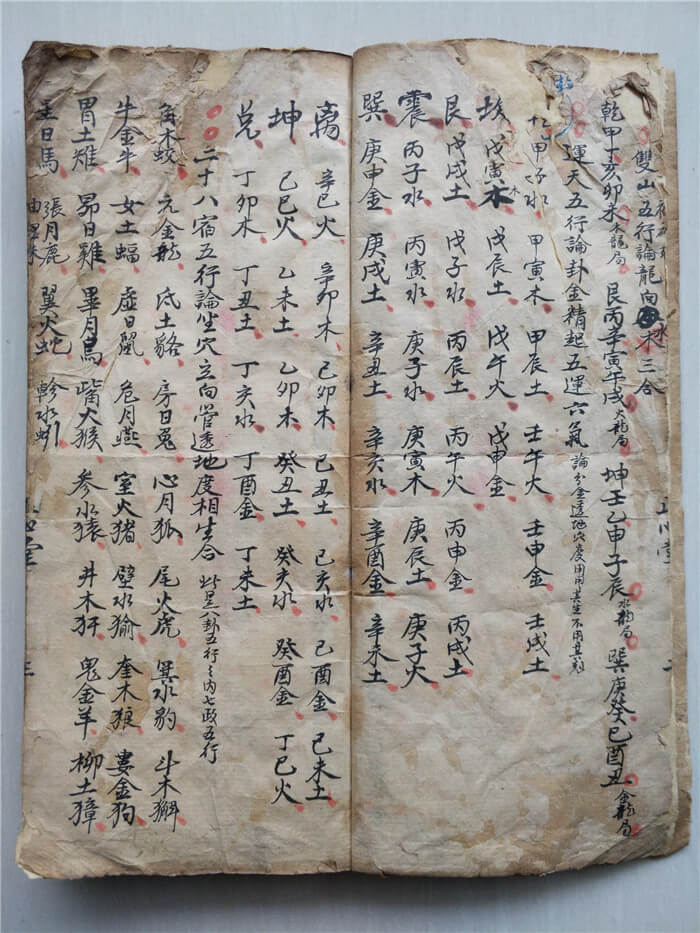 雙山五行論龍向水三合
乾甲丁亥卯未木龍局 艮丙辛寅午戌火龍局 坤壬乙申子辰水龍局 巽庚癸巳酉丑金龍局
運天五行論卦金精起五運六氣 論分金透地穴度用用其生不用其剋
甲子水 甲寅木 甲辰土 壬午火 壬申金 壬戌土
坎 戊寅木 戊辰土 戊午火 戊申金
艮 戊戌土 戊子水 丙辰土 丙午火 丙申金 丙戌土
震 丙子水 丙寅水 庚子水 庚寅木 庚辰土 庚子火
巽 庚申金 庚戌土 辛丑土 辛亥水 辛酉金 辛未土
离 辛巳火 辛卯木 己卯木 己丑土 己亥水 己酉金 己未土
坤 己巳火 乙未土 乙卯木 癸丑土 癸亥水 癸酉金 丁巳火
兑 丁卯木 丁丑土 丁亥水 丁酉金 丁未土
二十八宿五行論坐穴立向管透地度相生合 此是八卦五行之内七政五行
角木蛟 亢金龍 氐土貉 房日兔 心月狐 尾火虎 箕水豹 斗木獬
牛金牛 女土蝠 虚日鼠 危月燕 室火猪 壁水㺄 奎木狼 婁金狗
胃土雉 昴日雞 畢月烏 嘴火猴 参水猿 井木犴 鬼金羊 柳土獐
星日馬 張月鹿 翼火蛇 軫水蚓